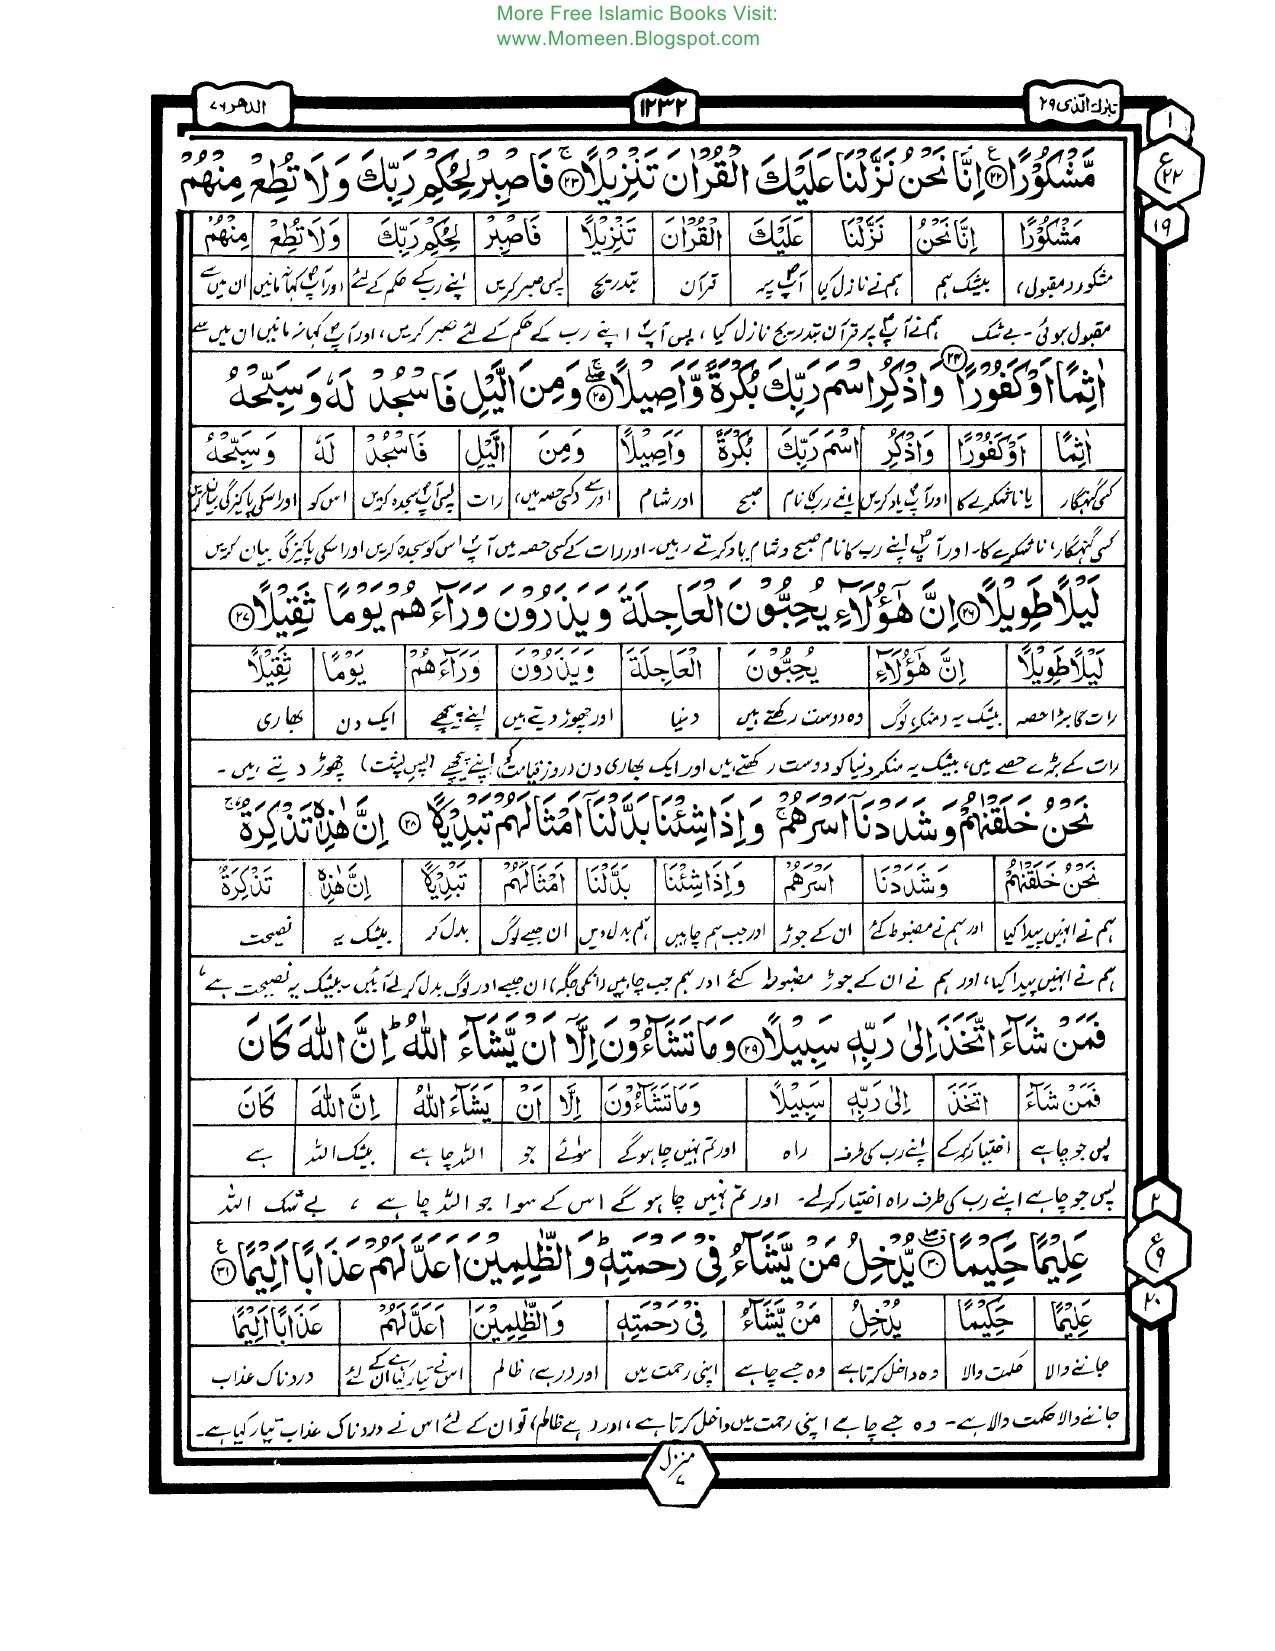 More Free Islamic Books Visit:
www.Momeen.Blogspot.com
تبٰرك الذى ٢٩
١٢٣٢
الدهر ٧٦
١
ع
٢٢
١٩
مَّشْكُوْرًا ﴿٢٢﴾ اِنَّا نَحْنُ نَزَّلْنَا عَلَيْكَ الْقُرْاٰنَ تَنْزِيْلًا ﴿٢٣﴾ فَاصْبِرْ لِحُكْمِ رَبِّكَ وَلَا تُطِعْ مِنْهُمْ
مَشْكُوْرًا اِنَّا نَحْنُ نَزَّلْنَا عَلَيْكَ الْقُرْاٰنَ تَنْزِيْلًا فَاصْبِرْ لِحُكْمِ رَبِّكَ وَلَا تُطِعْ مِنْهُمْ
مشکور (مقبول) بیشک ہم ہم نے نازل کیا آپؐ پر قرآن بتدریج پس صبر کریں اپنے رب کے حکم کے لئے اور آپؐ کہا نہ مانیں ان میں سے
مقبول ہوئی۔ بے شک ہم نے آپؐ پر قرآن بتدریج نازل کیا، پس آپؐ اپنے رب کے حکم کے لئے صبر کریں، اور آپؐ کہا نہ مانیں ان میں سے
اٰثِمًا اَوْ كَفُوْرًا ﴿٢٤﴾ وَاذْكُرِ اسْمَ رَبِّكَ بُكْرَةً وَّاَصِيْلًا ﴿٢٥﴾ وَمِنَ الَّيْلِ فَاسْجُدْ لَهٗ وَسَبِّحْهُ
اٰثِمًا اَوْ كَفُوْرًا وَاذْكُرِ اسْمَ رَبِّكَ بُكْرَةً وَاَصِيْلًا وَمِنَ الَّيْلِ فَاسْجُدْ لَهٗ وَسَبِّحْهُ
کسی گنہگار یا ناشکرے کا اور آپؐ یاد کریں اپنے رب کا نام صبح اور شام اور سے (کسی حصہ میں) رات پس آپؐ سجدہ کریں اس کو اور اسکی پاکیزگی بیان کریں
کسی گنہگار، ناشکرے کا۔ اور آپؐ اپنے رب کا نام صبح و شام یاد کرتے رہیں۔ اور رات کے کسی حصہ میں آپؐ اس کو سجدہ کریں اور اسکی پاکیزگی بیان کریں
لَيْلًا طَوِيْلًا ﴿٢٦﴾ اِنَّ هٰٓؤُلَآءِ يُحِبُّوْنَ الْعَاجِلَةَ وَيَذَرُوْنَ وَرَآءَهُمْ يَوْمًا ثَقِيْلًا ﴿٢٧﴾
لَيْلًا طَوِيْلًا اِنَّ هٰٓؤُلَآءِ يُحِبُّوْنَ الْعَاجِلَةَ وَيَذَرُوْنَ وَرَآءَهُمْ يَوْمًا ثَقِيْلًا
رات کا بڑا حصہ بیشک یہ (منکر) لوگ وہ دوست رکھتے ہیں دنیا اور چھوڑ دیتے ہیں اپنے پیچھے ایک دن بھاری
رات کے بڑے حصے میں، بیشک یہ منکر دنیا کو دوست رکھتے ہیں اور ایک بھاری دن (روز قیامت) کو اپنے پیچھے (پسِ پشت) چھوڑ دیتے ہیں۔
نَحْنُ خَلَقْنٰهُمْ وَشَدَدْنَآ اَسْرَهُمْ وَاِذَا شِئْنَا بَدَّلْنَآ اَمْثَالَهُمْ تَبْدِيْلًا ﴿٢٨﴾ اِنَّ هٰذِهٖ تَذْكِرَةٌ
نَحْنُ خَلَقْنٰهُمْ وَشَدَدْنَا اَسْرَهُمْ وَاِذَا شِئْنَا بَدَّلْنَا اَمْثَالَهُمْ تَبْدِيْلًا اِنَّ هٰذِهٖ تَذْكِرَةٌ
ہم نے انہیں پیدا کیا اور ہم نے مضبوط کئے ان کے جوڑ اور جب ہم چاہیں ہم بدل دیں ان جیسے لوگ بدل کر بیشک یہ نصیحت
ہم نے انہیں پیدا کیا، اور ہم نے ان کے جوڑ مضبوط کئے اور ہم جب چاہیں (انکی جگہ) ان جیسے اور لوگ بدل کر لے آئیں۔ بیشک یہ نصیحت ہے،
فَمَنْ شَآءَ اتَّخَذَ اِلٰى رَبِّهٖ سَبِيْلًا ﴿٢٩﴾ وَمَا تَشَآءُوْنَ اِلَّآ اَنْ يَّشَآءَ اللّٰهُ ؕ اِنَّ اللّٰهَ كَانَ
فَمَنْ شَآءَ اتَّخَذَ اِلٰى رَبِّهٖ سَبِيْلًا وَمَا تَشَآءُوْنَ اِلَّا اَنْ يَشَآءَ اللّٰهُ اِنَّ اللّٰهَ كَانَ
پس جو چاہے اختیار کر لے اپنے رب کی طرف راہ اور تم نہیں چاہو گے سوائے جو اللہ چاہے بیشک اللہ ہے
پس جو چاہے اپنے رب کی طرف راہ اختیار کر لے۔ اور تم نہیں چاہو گے اس کے سوا جو اللہ چاہے، بے شک اللہ
عَلِيْمًا حَكِيْمًا ﴿٣٠﴾ يُّدْخِلُ مَنْ يَّشَآءُ فِيْ رَحْمَتِهٖ ؕ وَالظّٰلِمِيْنَ اَعَدَّ لَهُمْ عَذَابًا اَلِيْمًا ﴿٣١﴾
٢
ع
٩
٢٠
عَلِيْمًا حَكِيْمًا يُدْخِلُ مَنْ يَّشَآءُ فِيْ رَحْمَتِهٖ وَالظّٰلِمِيْنَ اَعَدَّ لَهُمْ عَذَابًا اَلِيْمًا
جاننے والا حکمت والا وہ داخل کرتا ہے وہ جسے چاہے اپنی رحمت میں اور (رہے) ظالم اس نے تیار کیا ان کے لئے دردناک عذاب
جاننے والا حکمت والا ہے۔ وہ جسے چاہے اپنی رحمت میں داخل کرتا ہے، اور (رہے ظالم) تو ان کے لئے اس نے دردناک عذاب تیار کیا ہے۔
منزل
٧